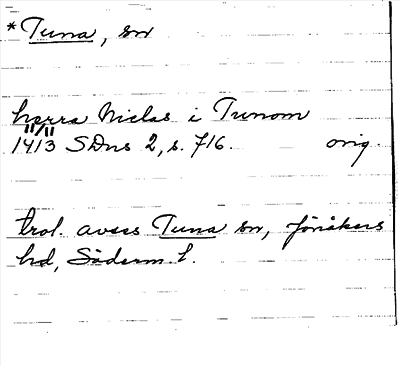 *Tuna, sn
herra Niclas i Tunom
11/11
1413 SDns 2, s. 716. orig.
trol. avses Tuna sn, Jönåkers
hd, Söderm. l.